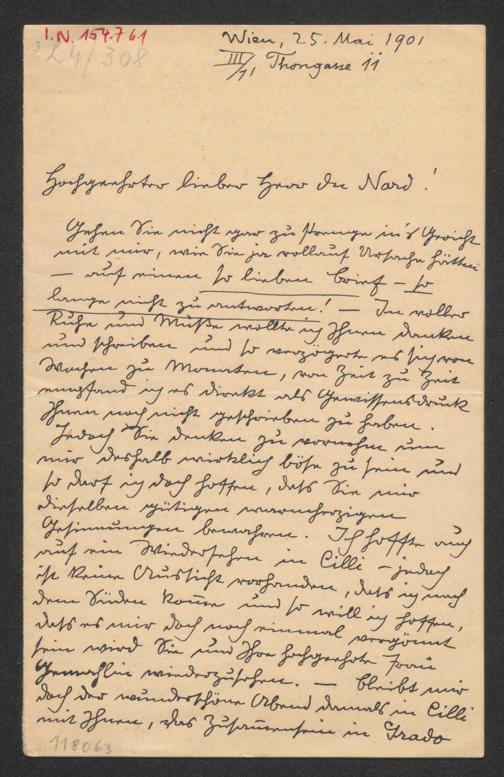 I.N. 154.761
24/308
Wien, 25. Mai 1901
III/1 Thongasse 11
Hochgeehrter lieber Herr Du Nord!
Gehen Sie nicht gar zu strenge in's Gericht
mit mir, wie Sie ja vollauf Ursache hätten
— auf einen so lieben Brief – so
lange nicht zu antworten! — In voller
Ruhe und Muße wollte ich Ihnen danken
und schreiben und so verzögerte es sich von
Wochen zu Monaten, von Zeit zu Zeit
empfand ich es direkt als Gewissensdruck
Ihnen noch nicht geschrieben zu haben.
Jedoch Sie denken zu vornehm um
mir deshalb wirklich böse zu sein und
so darf ich doch hoffen, dass Sie mir
dieselben gütigen warmherzigen
Gesinnungen bewahren. Ich hoffte auch
auf ein Wiedersehen in Cilli – jedoch
ist keine Aussicht vorhanden, dass ich nach
dem Süden kom̅e und so will ich hoffen,
dass es mir doch noch einmal vergönnt
sein wird Sie und Ihre hochgeehrte Frau
Gemahlin wiederzusehen. — Bleibt mir
doch der wunderschöne Abend damals in Cilli
mit Ihnen, das Zusam̅ensein in Grado
118063